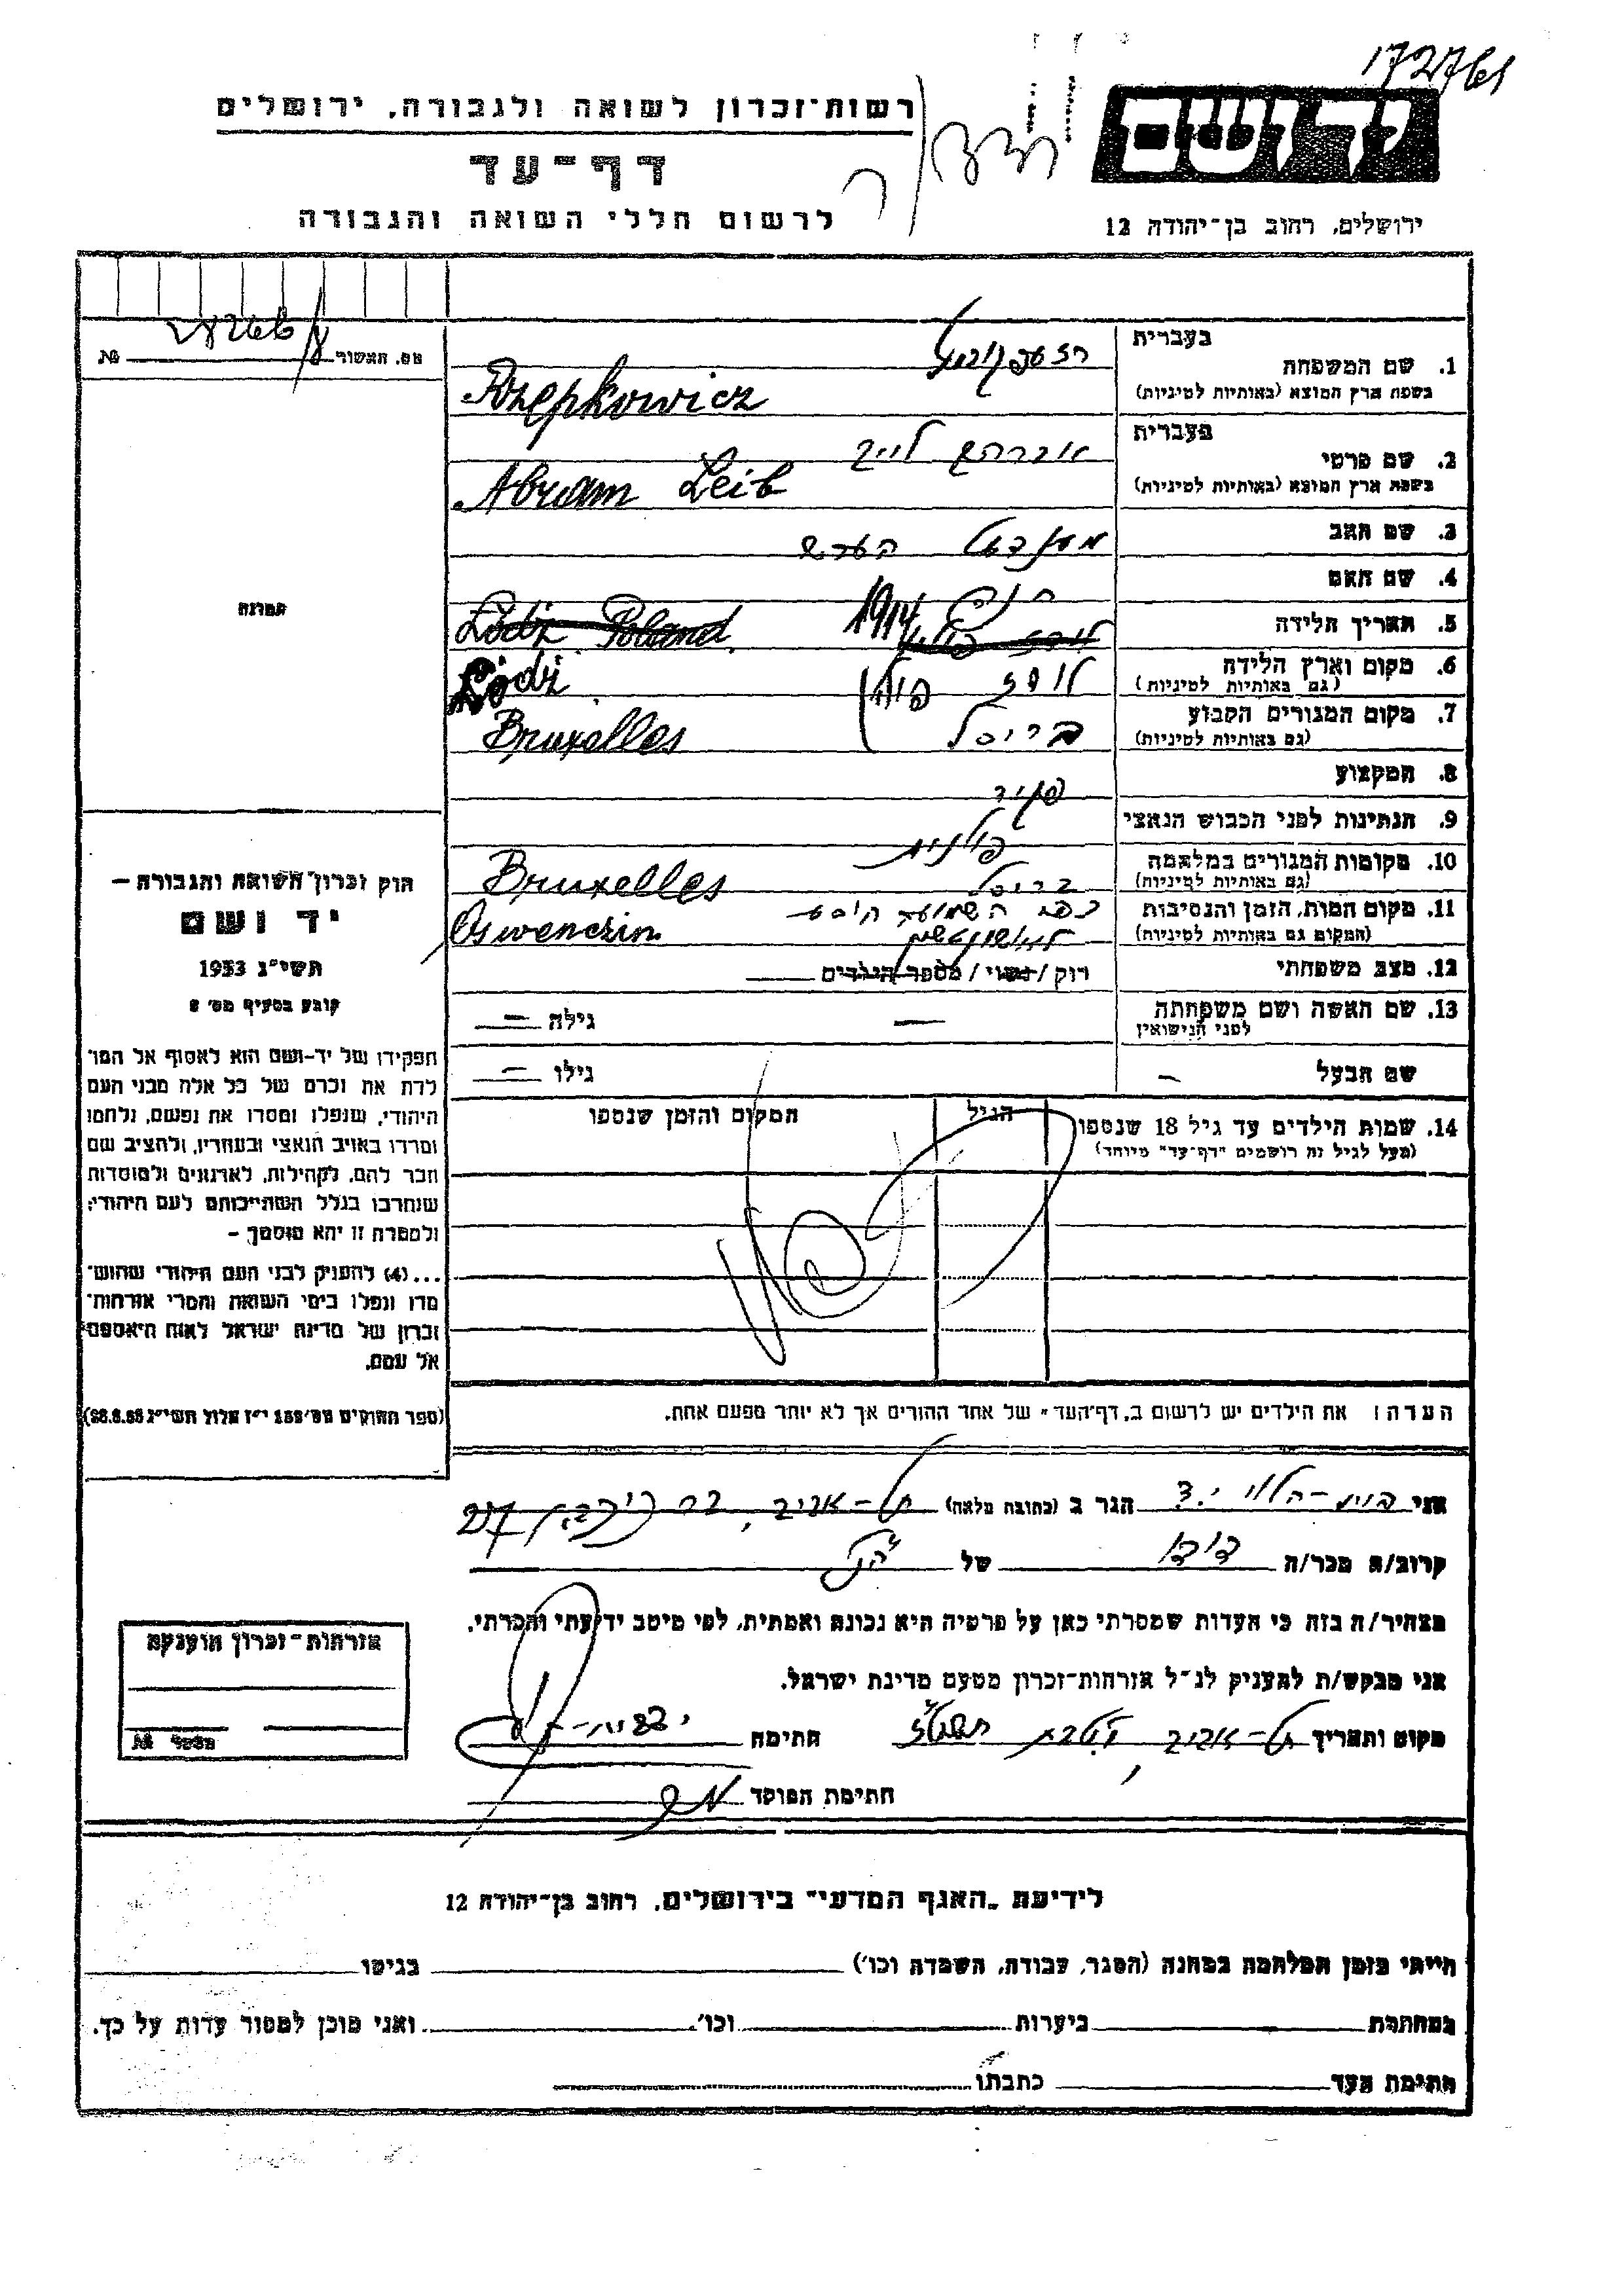 172761
רשות־זכרון לשואה ולגבורה, ירושלים
יד ושם
דף־עד
לרשום חללי השואה והגבורה
ירושלים, רחוב בן־יהודה 12
מס. האשור №
1. שם המשפחה בעברית
(בשפת ארץ המוצא (באותיות לטיניות
Rzepkowicz
2. שם פרטי בעברית אברהם לייב
(בשפת ארץ המוצא (באותיות לטיניות
Abram Leib
3. שם האב מענדעל הערש
4. שם האם
5. תאריך הלידה 1914 Łódź Poland
6. מקום וארץ הלידה לודז פולין Łódź
(גם באותיות לטיניות)
7. מקום המגורים הקבוע בריסל Bruxelles
(גם באותיות לטיניות)
8. המקצוע פקיד
9. הנתינות לפני הכבוש הנאצי פולנית
10. מקומות המגורים במלחמה בריסל Bruxelles
(גם באותיות לטיניות)
11. מקום המות, הזמן והנסיבות Oswenczin
(המקום גם באותיות לטיניות)
12. מצב משפחתי רוק / נשוי / מספר הילדים
13. שם האשה ושם משפחתה — גילה —
לפני הנישואין
שם הבעל — גילו —
14. שמות הילדים עד גיל 18 שנספו הגיל המקום והזמן שנספו
(מעל לגיל זה רושמים "דף־עד" מיוחד)
הערה: את הילדים יש לרשום ב„דף־העד" של אחד ההורים אך לא יותר מפעם אחת.
תמונה
חוק זכרון השואה והגבורה —
יד ושם
תשי"ג 1953
קובע בסעיף מס' 2
תפקידו של יד־ושם הוא לאסוף אל המו־
לדת את זכרם של כל אלה מבני העם
היהודי, שנפלו ומסרו את נפשם, נלחמו
ומרדו באויב הנאצי ובעוזריו, ולהציב שם
וזכר להם, לקהילות, לארגונים ולמוסדות
שנחרבו בגלל השתייכותם לעם היהודי;
ולמטרה זו יהא מוסמך —
...(4) להעניק לבני העם היהודי שהוש־
מדו ונפלו בימי השואה והמרי אזרחות־
זכרון של מדינת ישראל לאות היאספם
אל עמם.
(ספר החוקים מס' 132 י"ז אלול תשי"ג 28.8.53)
אני הגר ב (כתובת מלאה) תל־אביב, 27
קרוב/ה מכר/ה דודו של
מצהיר/ה בזה כי העדות שמסרתי כאן על פרטיה היא נכונה ואמתית, לפי מיטב ידיעתי והכרתי.
אני מבקש/ת להעניק לנ"ל אזרחות־זכרון מטעם מדינת ישראל.
מקום ותאריך תל־אביב, חתימה
חתימת הפוקד
אזרחות־זכרון הוענקה
מספר №
לידיעת „האגף המדעי" בירושלים, רחוב בן־יהודה 12
הייתי בזמן המלחמה במחנה (הסגר, עבודה, השמדה וכו') בגיטו
במחתרת ביערות וכו'. ואני מוכן למסור עדות על כך.
חתימת העד כתבתו